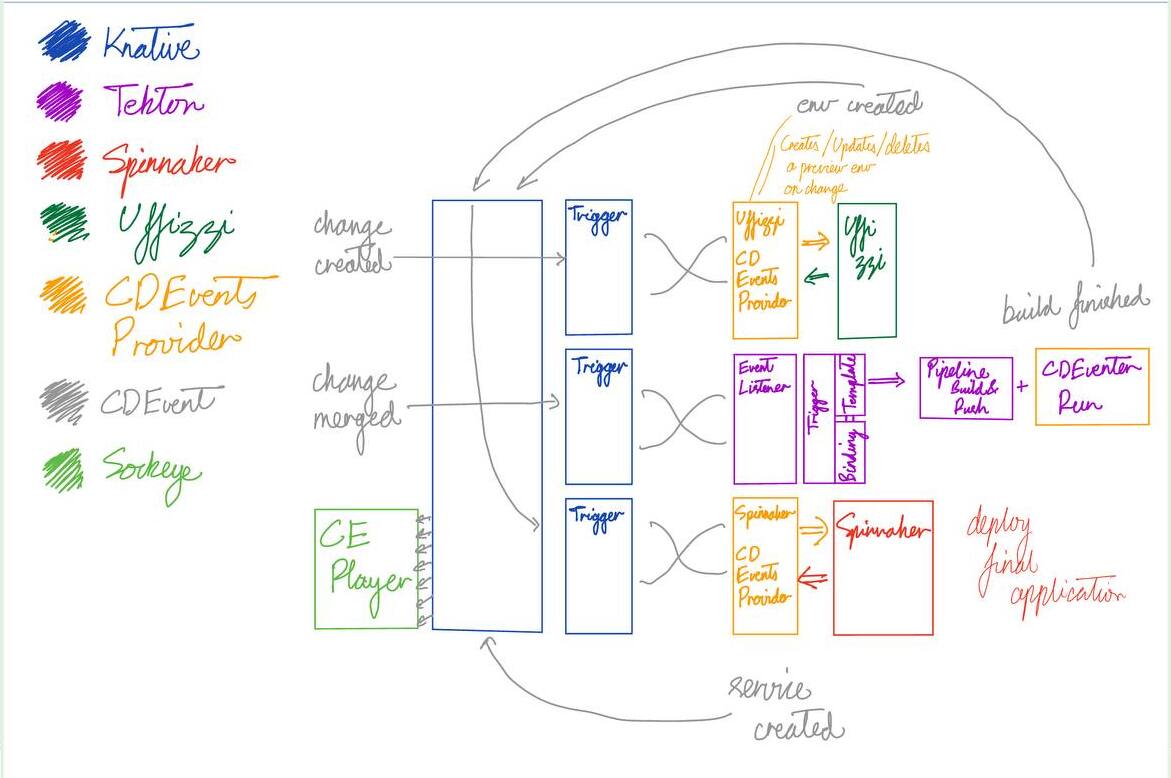 Knative
Tekton
Spinnaker
Uffizzi
CDEvents
Provider
CDEvent
Sockeye
env created
Creates/Updates/deletes
a preview env
on change
change
created
Trigger
Uffizzi
CD
Events
Provider
Uffi
zzi
build finished
change
merged
Trigger
Event
Listener
Trigger
Template
Binding
Pipeline
Build &
Push
+
CDEventer
Run
CE
Player
Trigger
Spinnaker
CD
Events
Provider
Spinnaker
deploy
final
application
service
created